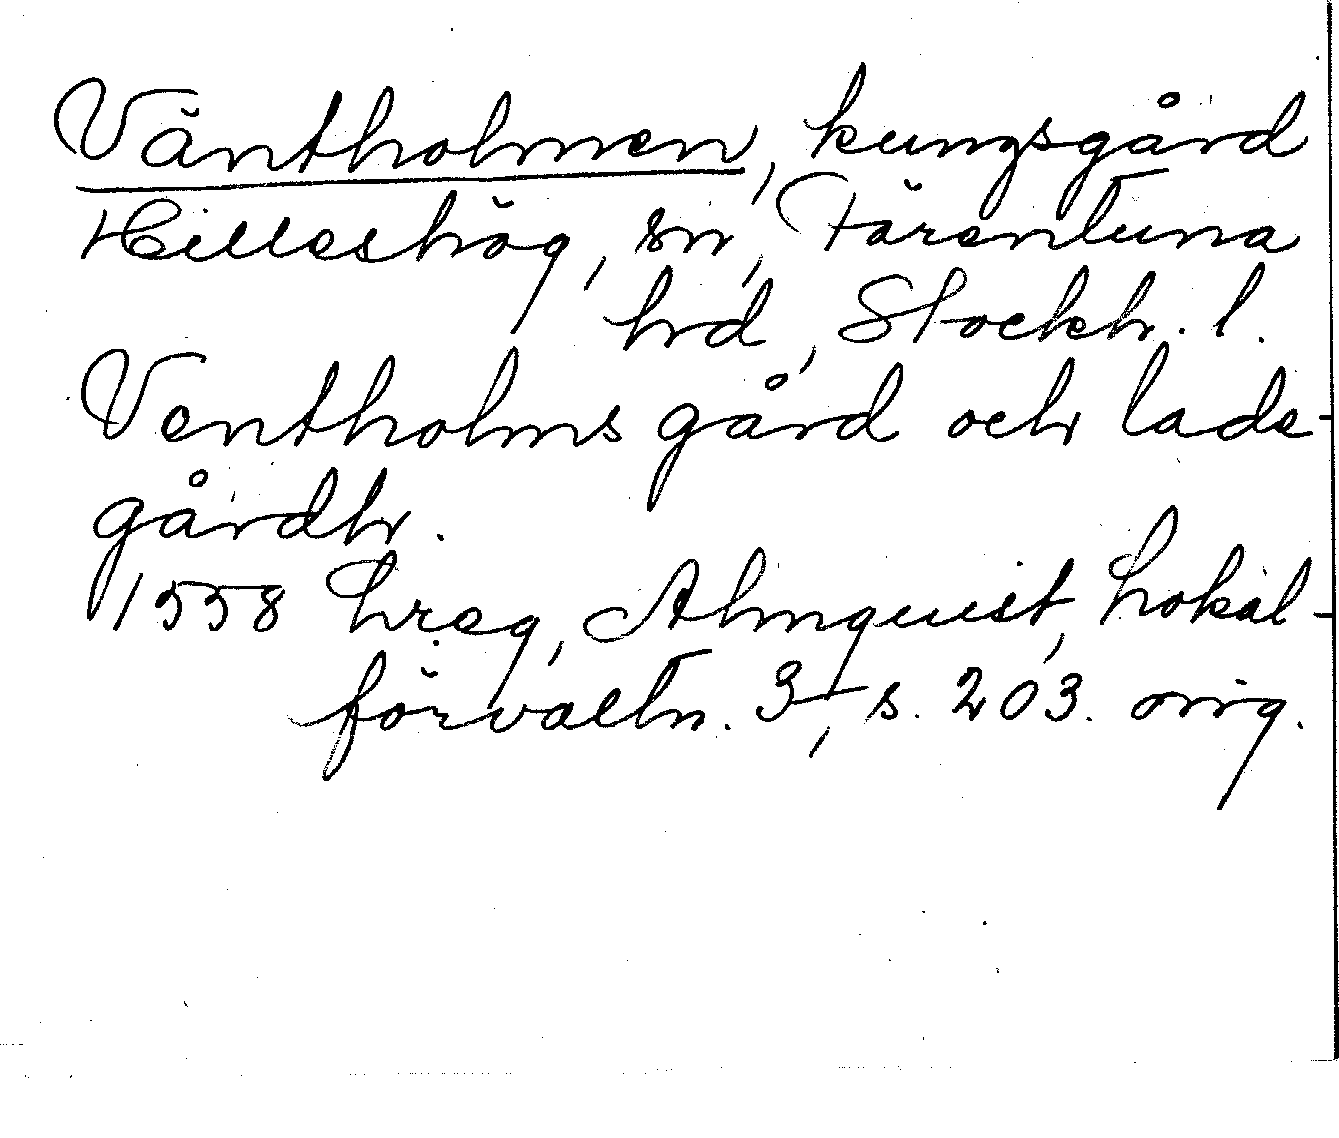 Väntholmen, kungsgård
Hilleshög, sn, Färentuna
hrd, Stockh. l.
Ventholms gård och lade-
gårdh.
1558 hreg, Almquist, Lokal-
förvaltn. 3, s. 203. orig.